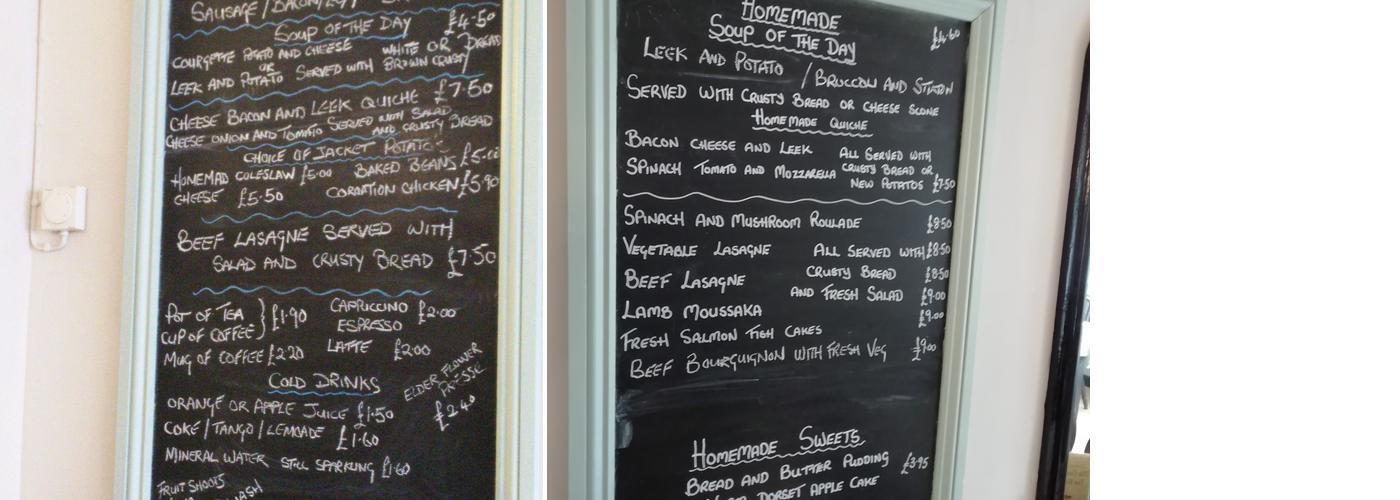 SAUSAGE / BACON / EGG
SOUP OF THE DAY £4.50
COURGETTE POTATO AND CHEESE WHITE OR BREAD
OR
LEEK AND POTATO SERVED WITH BROWN CRUSTY
CHEESE BACON AND LEEK QUICHE £7.50
CHEESE ONION AND TOMATO SERVED WITH SALAD
AND CRUSTY BREAD
CHOICE OF JACKET POTATO'S
HOMEMAD COLESLAW £5.00 BAKED BEANS £5.00
CHEESE £5.50 CORONTION CHICKEN £5.90
BEEF LASAGNE SERVED WITH
SALAD AND CRUSTY BREAD £7.50
POT OF TEA
CUP OF COFFEE } £1.90
CAPRICCINO £2.00
ESPRESSO
MUG OF COFFEE £2.20 LATTE £2.00
COLD DRINKS
ELDER FLOWER
PRESSE
£2.40
ORANGE OR APPLE JUICE £1.50
COKE / TANGO / LEMOADE £1.60
MINERAL WATER STILL SPARKLING £1.60
FRUIT SHOOTS
HOMEMADE
SOUP OF THE DAY £4.60
LEEK AND POTATO / BROCCOLI AND STILTON
SERVED WITH CRUSTY BREAD OR CHEESE SCONE
HOMEMADE QUICHE
BACON CHEESE AND LEEK ALL SERVED WITH
SPINACH TOMATO AND MOZZARELLA CRUSTY BREAD OR
NEW POTATOS £7.50
SPINACH AND MUSHROOM ROULADE £8.50
VEGETABLE LASAGNE ALL SERVED WITH £8.50
BEEF LASAGNE CRUSTY BREAD £8.50
AND FRESH SALAD £9.00
LAMB MOUSSAKA £9.00
FRESH SALMON FISH CAKES
BEEF BOURGUIGNON WITH FRESH VEG £9.00
HOMEMADE SWEETS
BREAD AND BUTTER PUDDING £3.95
DORSET APPLE CAKE